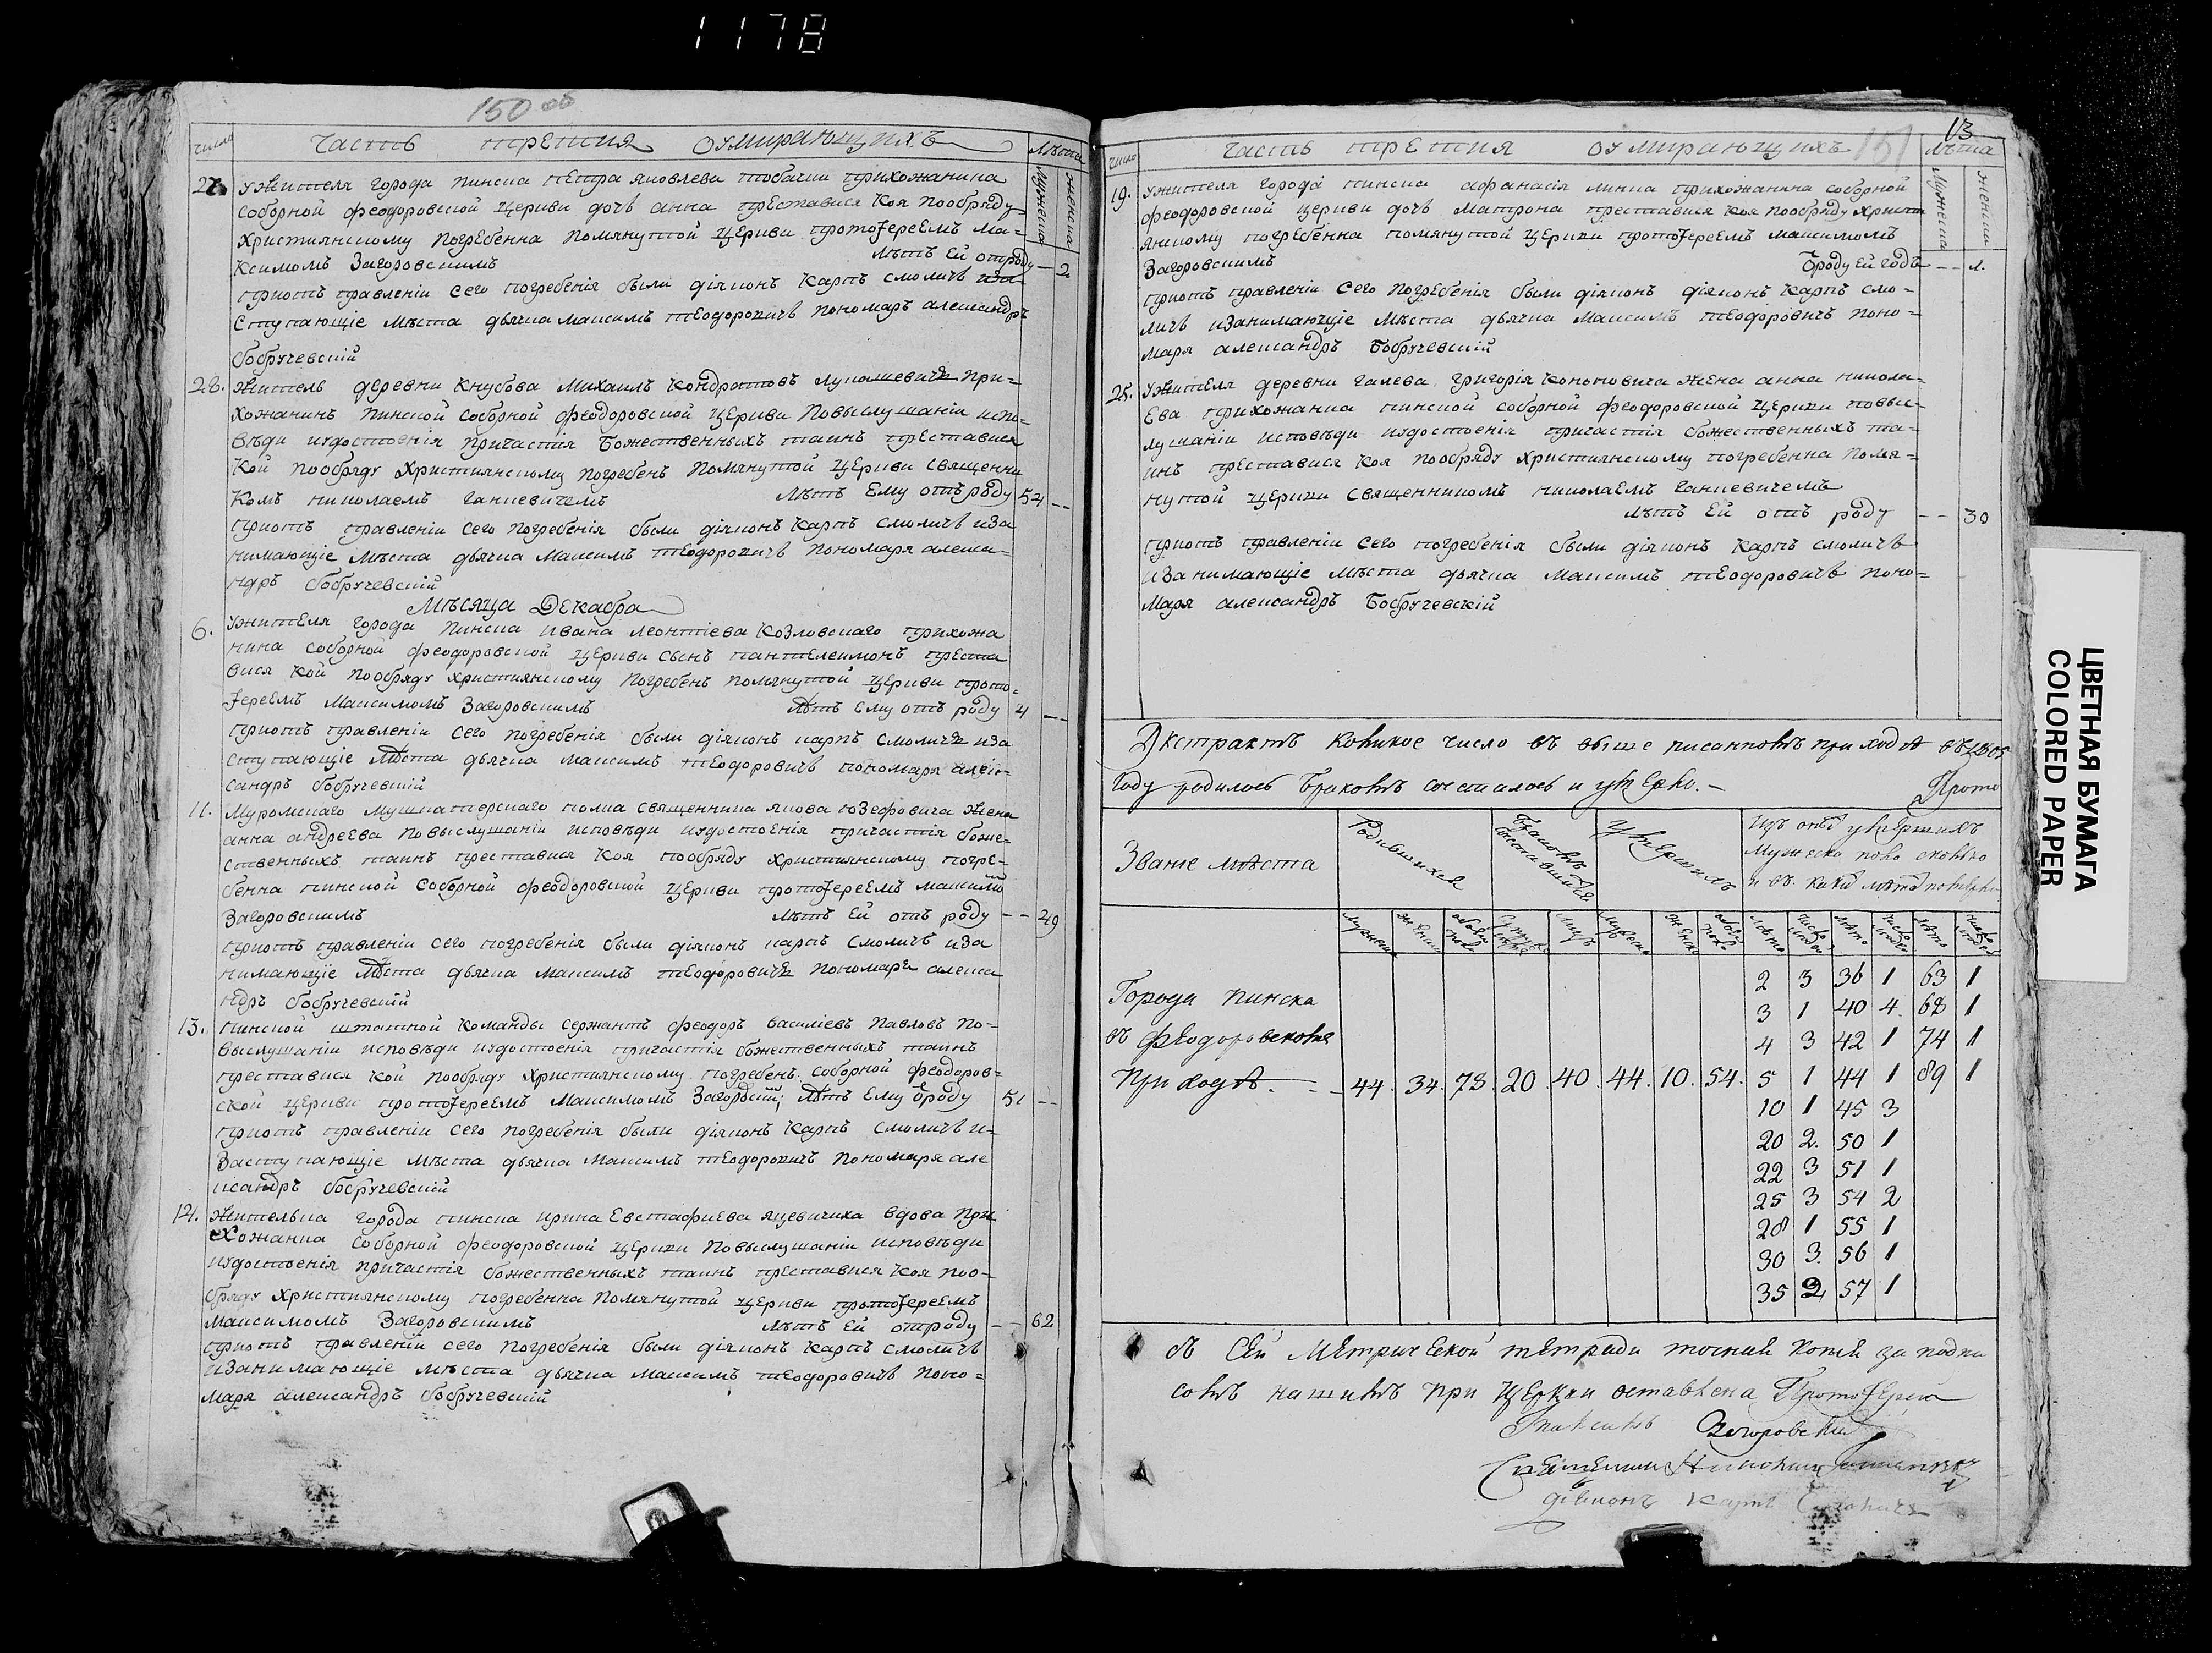 1178
150 об
число Часть третия оумирающихъ Лѣта
Мужеска женска
27. Ужителя города пинска петра яковлева тобачки прихожанина
соборной феодоровской церкви дочь анна преставися коя пообряду
християнскому погребенна помянутой церкви протоіереемъ ма-
ксимомъ Загоровскимъ лѣтъ ей отроду — 2
приотъ правленіи сего погребенія были діяконъ карпъ смоличь иза
ступающіе мѣста дьячка максимъ теодоровичь пономаръ александръ
бобручевскій
28. Житель деревни кнубова михаилъ кондратовъ лукашевичь при-
хожанинъ пинской соборной феодоровской церкви повыслушаніи испо-
вѣди иудостоенія причастія божественныхъ таинъ преставися
кой пообряду християнскому погребенъ помянутой церкви священни
комъ николаемъ ганкевичемъ лѣтъ ему отъ роду 54 --
приотъ правленіи сего погребенія были діяконъ карпъ смоличь иза
нимающіе мѣста дьячка максимъ теодоровичь пономаря алекса-
ндръ бобручевскій
Мѣсяца Декабра
6. Ужителя города пинска ивана леонтіева козловскаго прихожа
нина соборной феодоровской церкви сынъ пантелеимонъ преста
вися кой пообряду християнскому погребенъ помянутой церкви прото-
іереемъ максимомъ Загоровскимъ лѣтъ ему отъ роду 4 --
приотъ правленіи сего погребенія были діяконъ карпъ смоличь иза
ступающіе мѣста дьячка максимъ теодоровичь пономаря алек-
сандръ бобручевскій
11. Муромскаго мушкатерскаго полка священника якова юзефовича жена
анна андреева повыслушаніи исповѣди иудостоенія причастія боже-
ственныхъ таинъ преставися коя пообряду християнскому погре-
бенна пинской соборной феодоровской церкви протоіереемъ максимо
Загоровскимъ лѣтъ ей отъ роду -- 29
приотъ правленіи сего погребенія были діяконъ карпъ смоличь иза
нимающіе мѣста дьячка максимъ теодоровичь пономаря алекса
ндръ бобручевскій
13. пинской штатной команды сержантъ феодоръ василіевъ павловъ по-
выслушаніи исповѣди иудостоенія причастія божественныхъ таинъ
преставися кой пообряду християнскому погребенъ соборной феодоров-
ской церкви протоіереемъ максимомъ Загорвским; лѣтъ ему ѿроду 51 --
приотъ правленіи сего погребенія были діяконъ карпъ смоличь и-
заступающіе мѣста дьячка максимъ теодоровичь пономаря але
ксандръ бобручевскій
14. Жителька города пинска ирина евстафиева яцевичиха вдова при
хожанка соборной феодоровской церкви повыслушаніи исповѣди
иудостоенія причастія божественныхъ таинъ преставися коя поо-
бряду християнскому погребенна помянутой церкви протоіереемъ
максимомъ Загоровскимъ лѣтъ ей отроду -- 62
приотъ правленіи сего погребенія были діяконъ карпъ смоличь
изанимающіе мѣста дьячка максимъ теодоровичь поно-
маря александръ бобручевскій
13
151
число Часть третия оумирающихъ Лѣта
Мужеска женска
19. Ужителя города пинска афанасія линка прихожанина соборной
феодоровской церкви дочь матрона преставися коя пообряду христи
янскому погребенна помянутой церкви протоіереемъ максимомъ
Загоровскимъ ѿроду ей годъ -- 1.
приотъ правленіи сего погребенія были діяконъ діяконъ карпъ смо-
личь изанимающіе мѣста дьячка максимъ теодоровичь поно-
маря александръ бобручевскій
25. Ужителя деревни галева григорія кононовича жена анна никола-
ева прихожанка пинской соборной феодоровской церкви повыс-
лушаніи исповѣди иудостоенія причастія божественныхъ та-
инъ преставися коя пообряду християнскому погребенна помя-
нутой церкви священникомъ николаемъ ганкевичемъ
лѣтъ ей отъ роду -- 30
приотъ правленіи сего погребенія были діяконъ карпъ смоличь
изанимающіе мѣста дьячка максимъ теодоровичь поно-
маря александръ Бобручевскій
Экстрактъ коликое число въ выше писанномъ приходѣ въ 1805
году родилось браковъ сочеталось и умерло. — Прото
Звание мѣста Родившихся Браковъ Умершихъ Изъ оныхъ умершихъ
мужеска полу сколько
и въ какихъ лѣтахъ померло
мужеска женска обоего полу лицъ мужеска женска обоего полу лѣта число людей лѣта число людей лѣта число людей
2 3 36 1 63 1
Города Пинска
3 1 40 4. 68 1
въ Феодоровскомъ
4 3 42 1 74 1
Приходѣ. - 44. 34. 78. 20. 40. 44. 10. 54. 5 1 44 1 89 1
10 1 45 3
20 2. 50 1
22 3 51 1
25 3 54 2
28 1 55 1
30 3. 56 1
35 2 57 1
съ Сей Метрической тетради точная копія за подпи
сомъ нашимъ при Церкви оставлена Протоіерей
Максимъ Загоровскій
Священникъ Николай Ганкевичъ
діяконъ Карпъ Смоличь
ЦВЕТНАЯ БУМАГА
COLORED PAPER